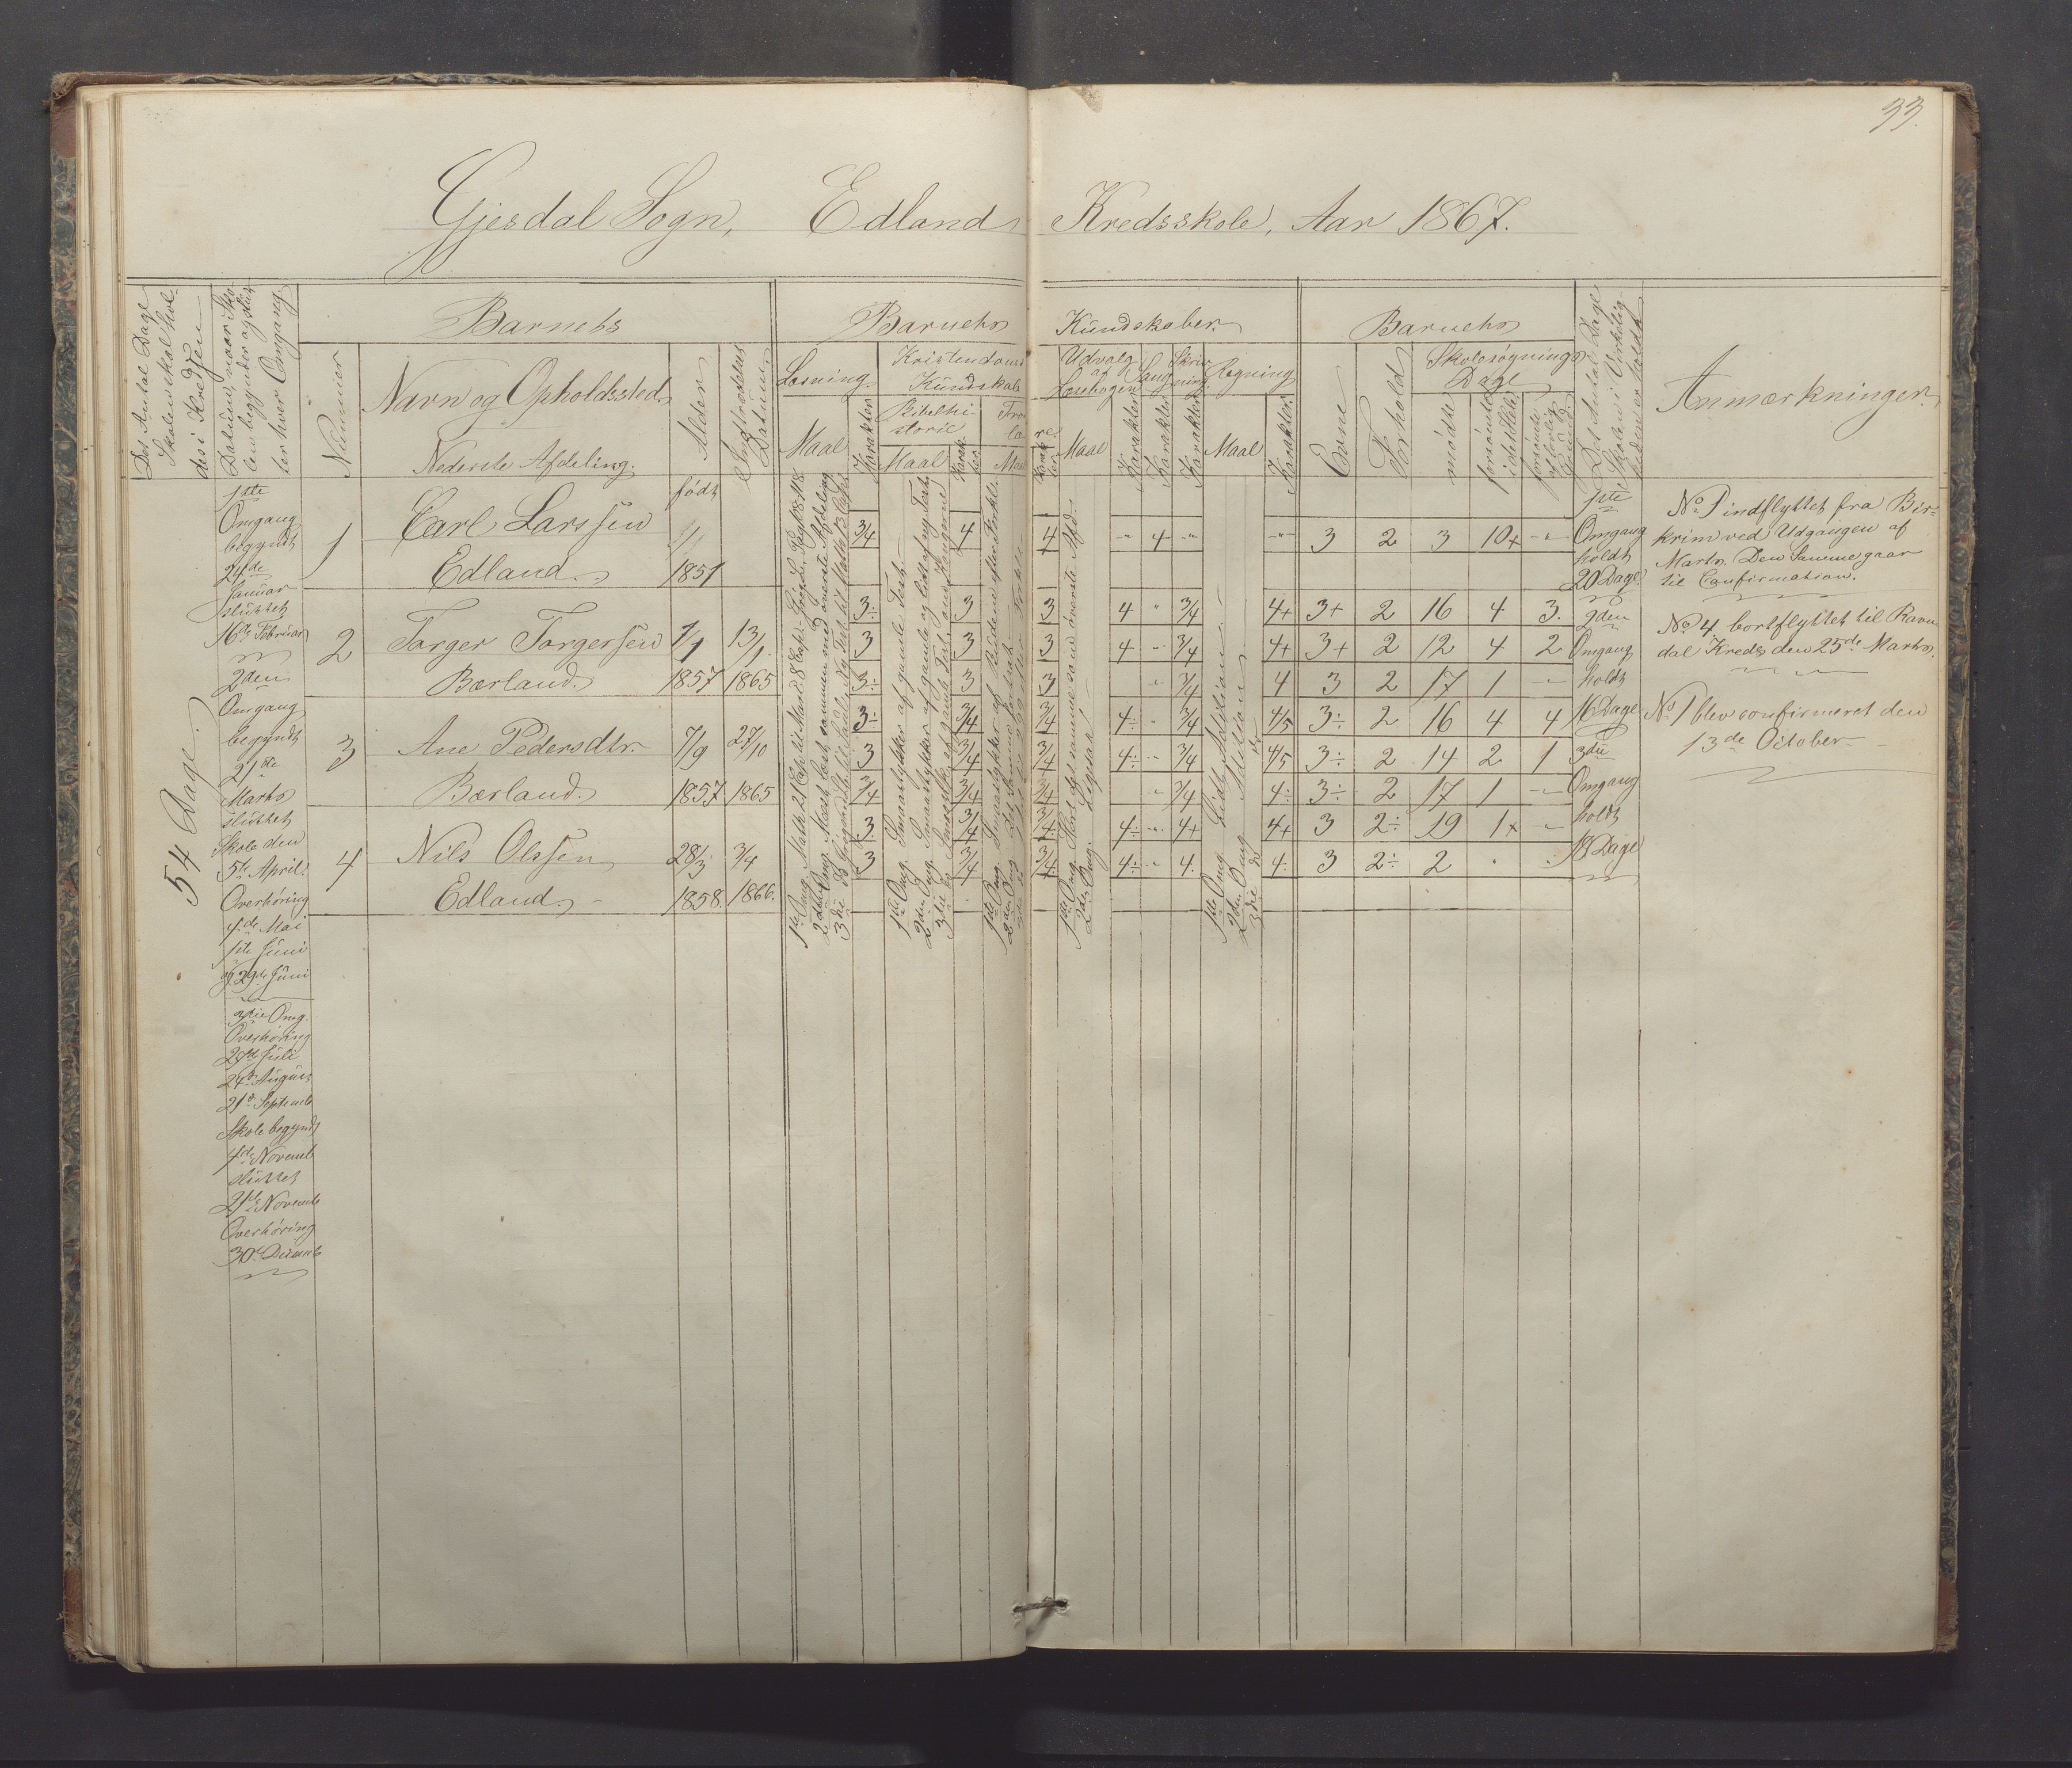 33.
Gjesdal Sogn, Edland Kredsskole, Aar 1867.
Det Antal Dage
Skolen skal hol-
des i Kredsen
Datum, naar Sko-
len begynder og slut-
ter hver Omgang.
Barnets
Nummer
Navn og Opholdssted.
Nederste Afdeling.
Alder
Indtrædelses
Datum.
Barnets Kundskaber.
Læsning.
Maal
Karakter
Kristendoms
Kundskab
Bibelhi-
storie
Maal
Karak-
ter.
Tro
lære.
Maal
Karak-
ter.
Udvalg
af
Læsebogen
Maal
Karakter
Sang
Karakter
Skriv-
ning
Karakter
Regning
Maal
Karakter.
Barnets
Evne
Forhold
Skolesøgnings-
Dage
mødte
forsømte
i det Hele
forsømte
af lovlig
Grund.
Det Antal Dage
Skolen i Virkelig-
heden er holdt
Anmærkninger.
54 Dage.
1ste
Omgang
begyndt
24de
Januar
sluttet
16de Februar
2den
Omgang
begyndt
21de
Marts
sluttet
Skole den
5te April.
Overhøring
4de Mai
1ste Juni
og 29de Juni
3die Omg.
Overhøring
27de Juli
24de August
21de Septemb
Skole begyndt
1ste Novemb
sluttet
21de Novemb
Overhøring
30te Decemb
født
1 Carl Larssen 1/1
Edland. 1851
3/4 4 4 " 4 " " 3 2 3 10+ "
2 Torger Torgersen 7/1 13/1
Bærland. 1857 1865
3÷ 3 3 4 " 3/4 4+ 3+ 2 16 4 3.
3 3 3 4 " 3/4 4+ 3+ 2 12 4 2
3÷ 3 3 " 3/4 4 3 2 17 1 "
3 Ane Pedersdtr. 7/9 27/10
Bærland. 1857 1865
3÷ 3/4 3/4 4÷ " 3/4 4/5 3÷ 2 16 4 4
3 3/4 3/4 4÷ " 3/4 4/5 3÷ 2 14 2 1
3/4 3/4 3/4 " 3/4 4÷ 3÷ 2 17 1 "
4 Nils Olssen 28/3 3/4
Edland. 1858. 1866.
3 3/4 3/4 4÷ " 4+ 4+ 3 2÷ 19 1+ "
3 3/4 3/4 4÷ " 4. 4. 3 2÷ 2 . .
1ste Omg.
2den Omg. Mest læst sammen med øverste Afdeling
1ste Omg. Smaastykker af gamle Test.
2den Omg. Smaastykker af gamle og lidt af ny Test.
1ste Omg. Lidt Addition.
2den Omg. Addition
1ste
Omgang
holdt
20 Dage.
2den
Omgang
holdt
16 Dage
3die
Omgang
holdt
18 Dage
No 1 indflyttet fra Bir-
krim ved Udgangen af
Marts. Den Samme gaar
til Confirmation.
No 4 bortflyttet til Ravn
dal Kreds den 25de Marts.
No 1 blev confirmeret den
13de October